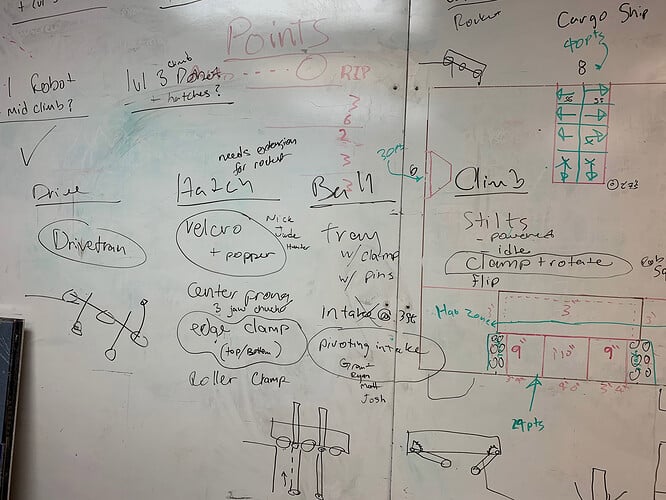 Points
Rocket
Cargo Ship
40pts
8
1 Robot
mid climb?
climb
lvl 3 Robot
+ hatches?
RIP
3
6
2
3
3
needs extension
for rocket
30pt
6
Drive
Hatch
Ball
Climb
Drivetrain
velcro
+ popper
Nick
Jude
Hunter
center prong
3 jaw chuck
edge clamp
(top/bottom)
Roller Clamp
Tray
w/ clamp
w/ pins
Intake
pivoting intake
Grant
Ryan
Matt
Josh
Stilts
- powered
idle
Clamp + rotate
flip
Hab Zone
3
9"
9"
24pts